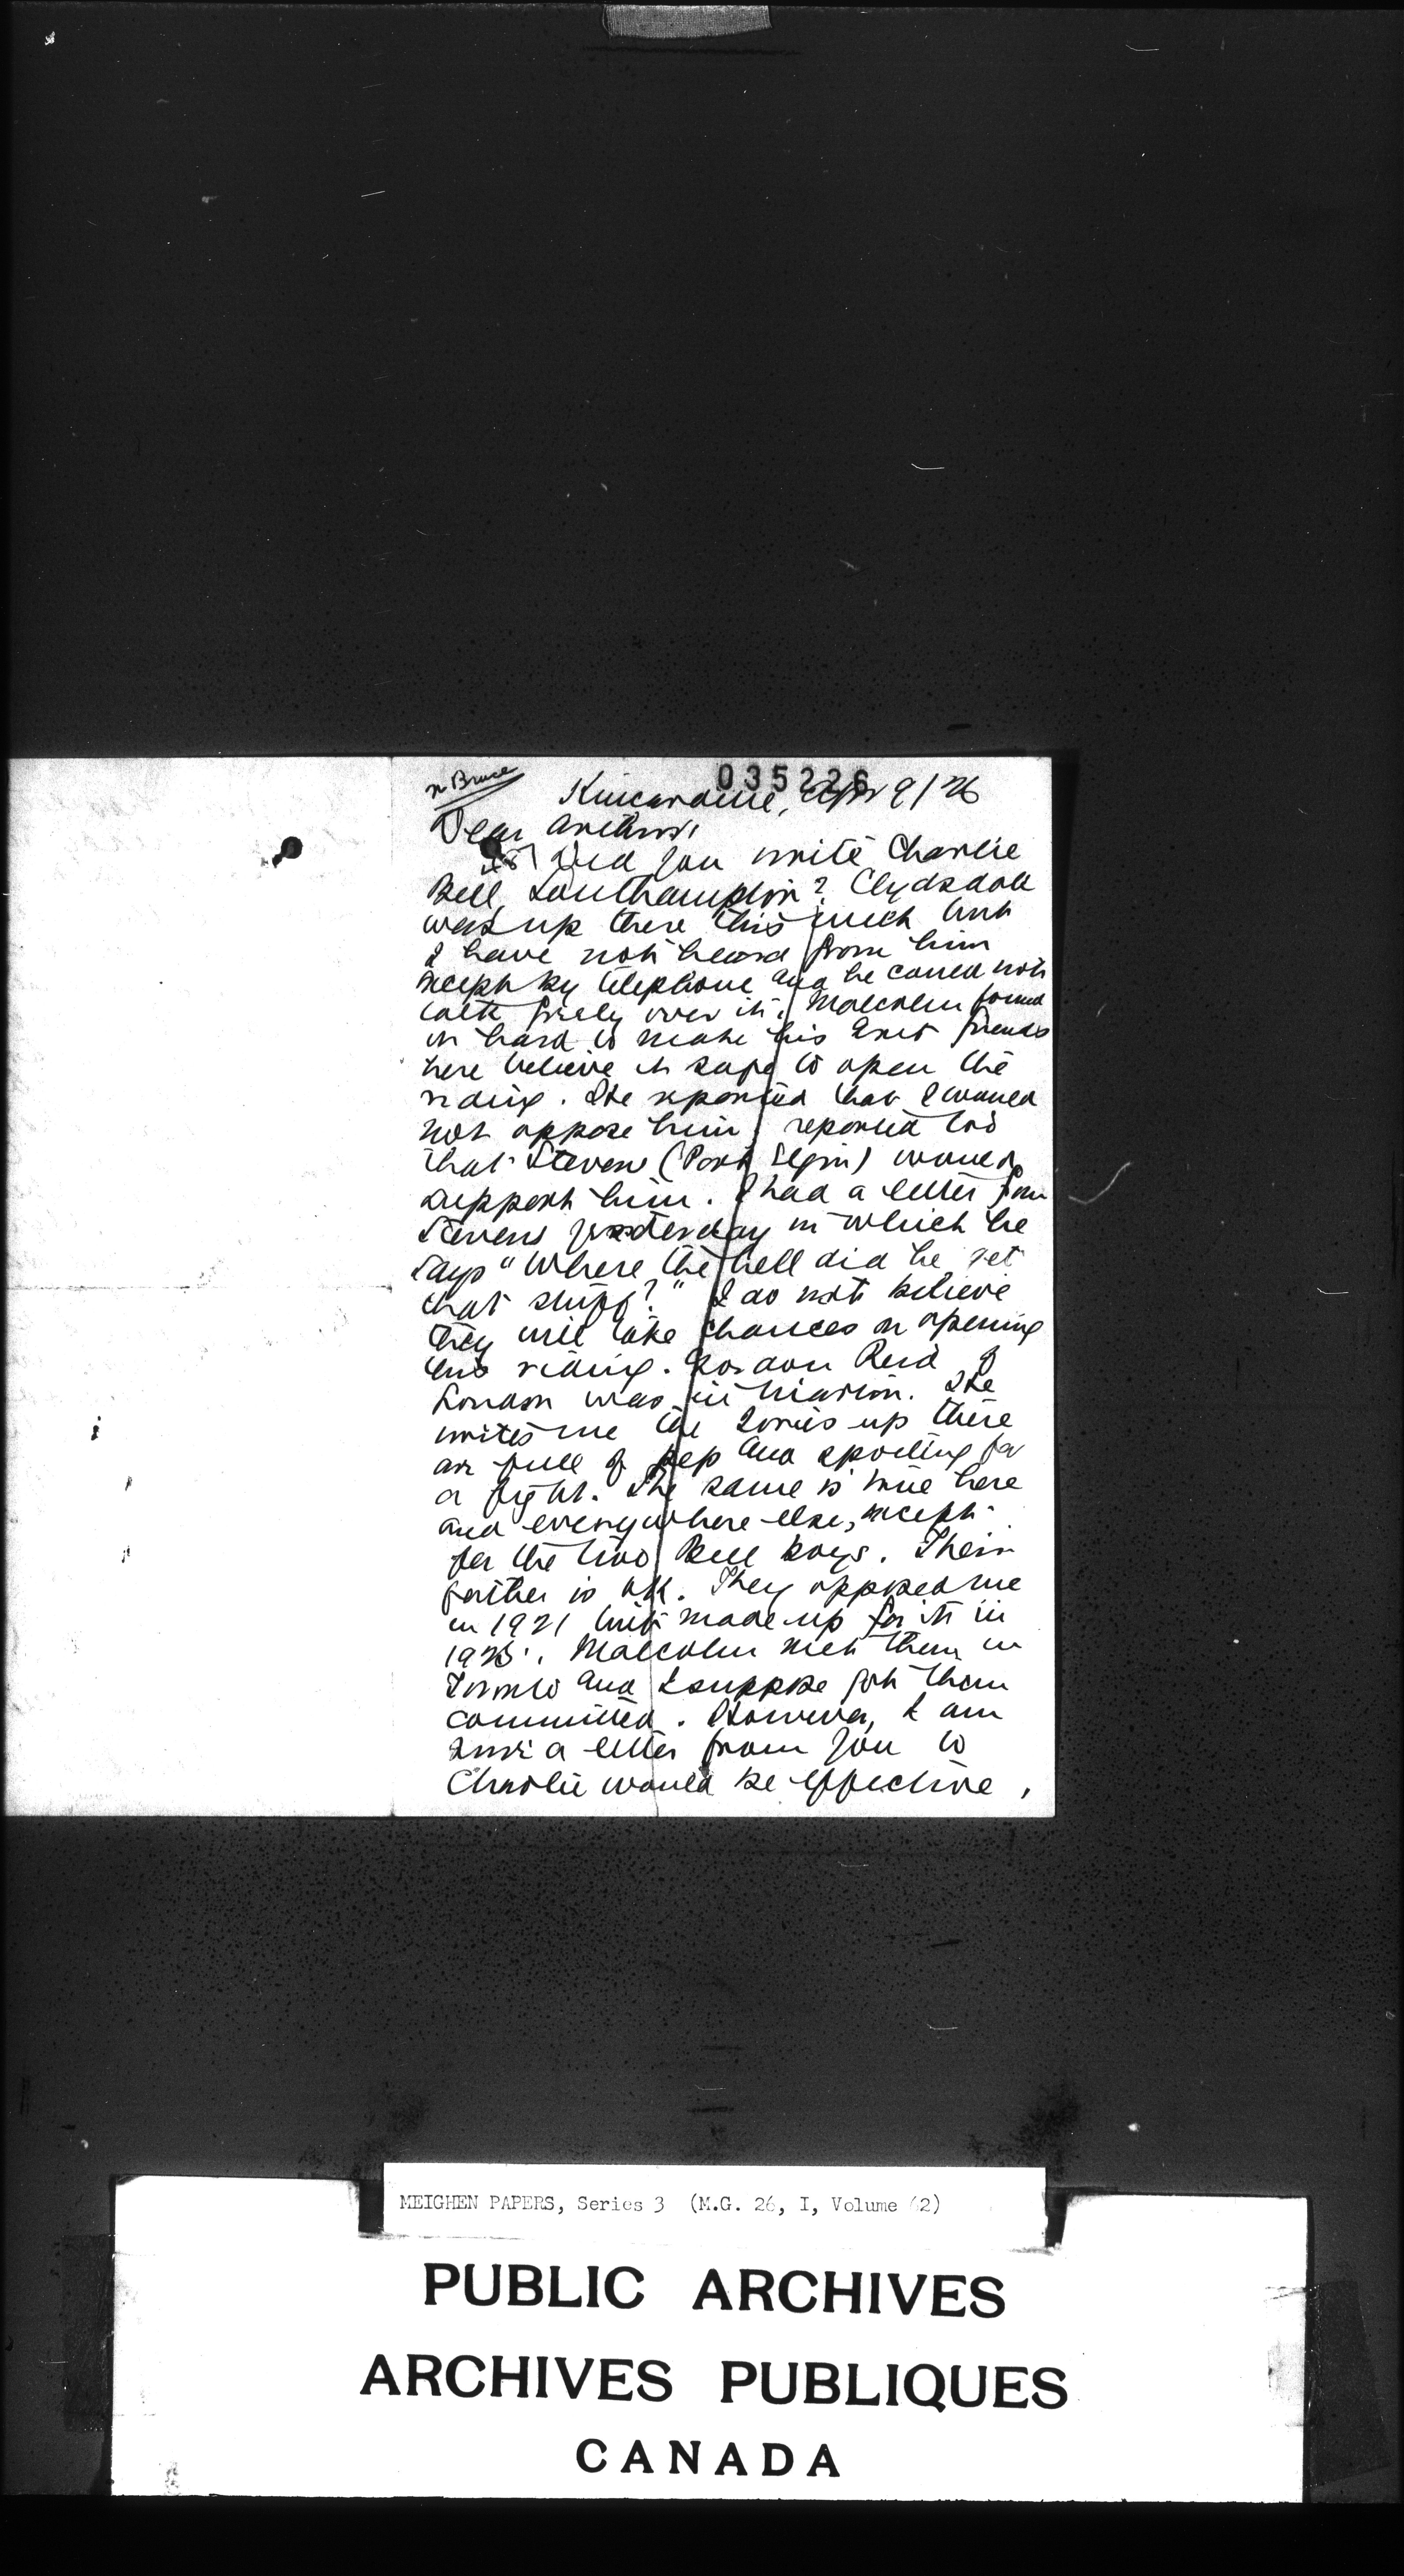 035226
N Bruce
Kincardine, Apr 9/26
Dear Arthur,
Did you write Charlie
Bell, Southampton? Clydsdale
was up there this week but
I have not heard from him
except by telephone and he could not
talk freely over it. Malcolm found
it hard to make his Grit friends
here believe it safe to open the
riding. He reported that I would
not oppose him, reported too
that Stevens (Port Elgin) would
support him. I had a letter from
Stevens yesterday in which he
says "Where the hell did he get
that stuff?" I do not believe
they will take chances on opening
this riding. Gordon Reid of
London was in Wiarton. He
writes me the Tories up there
are full of pep and spoiling for
a fight. The same is true here
and everywhere else, except
for the two Bell boys. Their
father is OK. They opposed me
in 1921 but made up for it in
1925. Malcolm met them in
Toronto and I suppose got them
committed. However, I am
sure a letter from you to
Charlie would be effective,
MEIGHEN PAPERS, Series 3 (M.G. 26, I, Volume 62)
PUBLIC ARCHIVES
ARCHIVES PUBLIQUES
CANADA